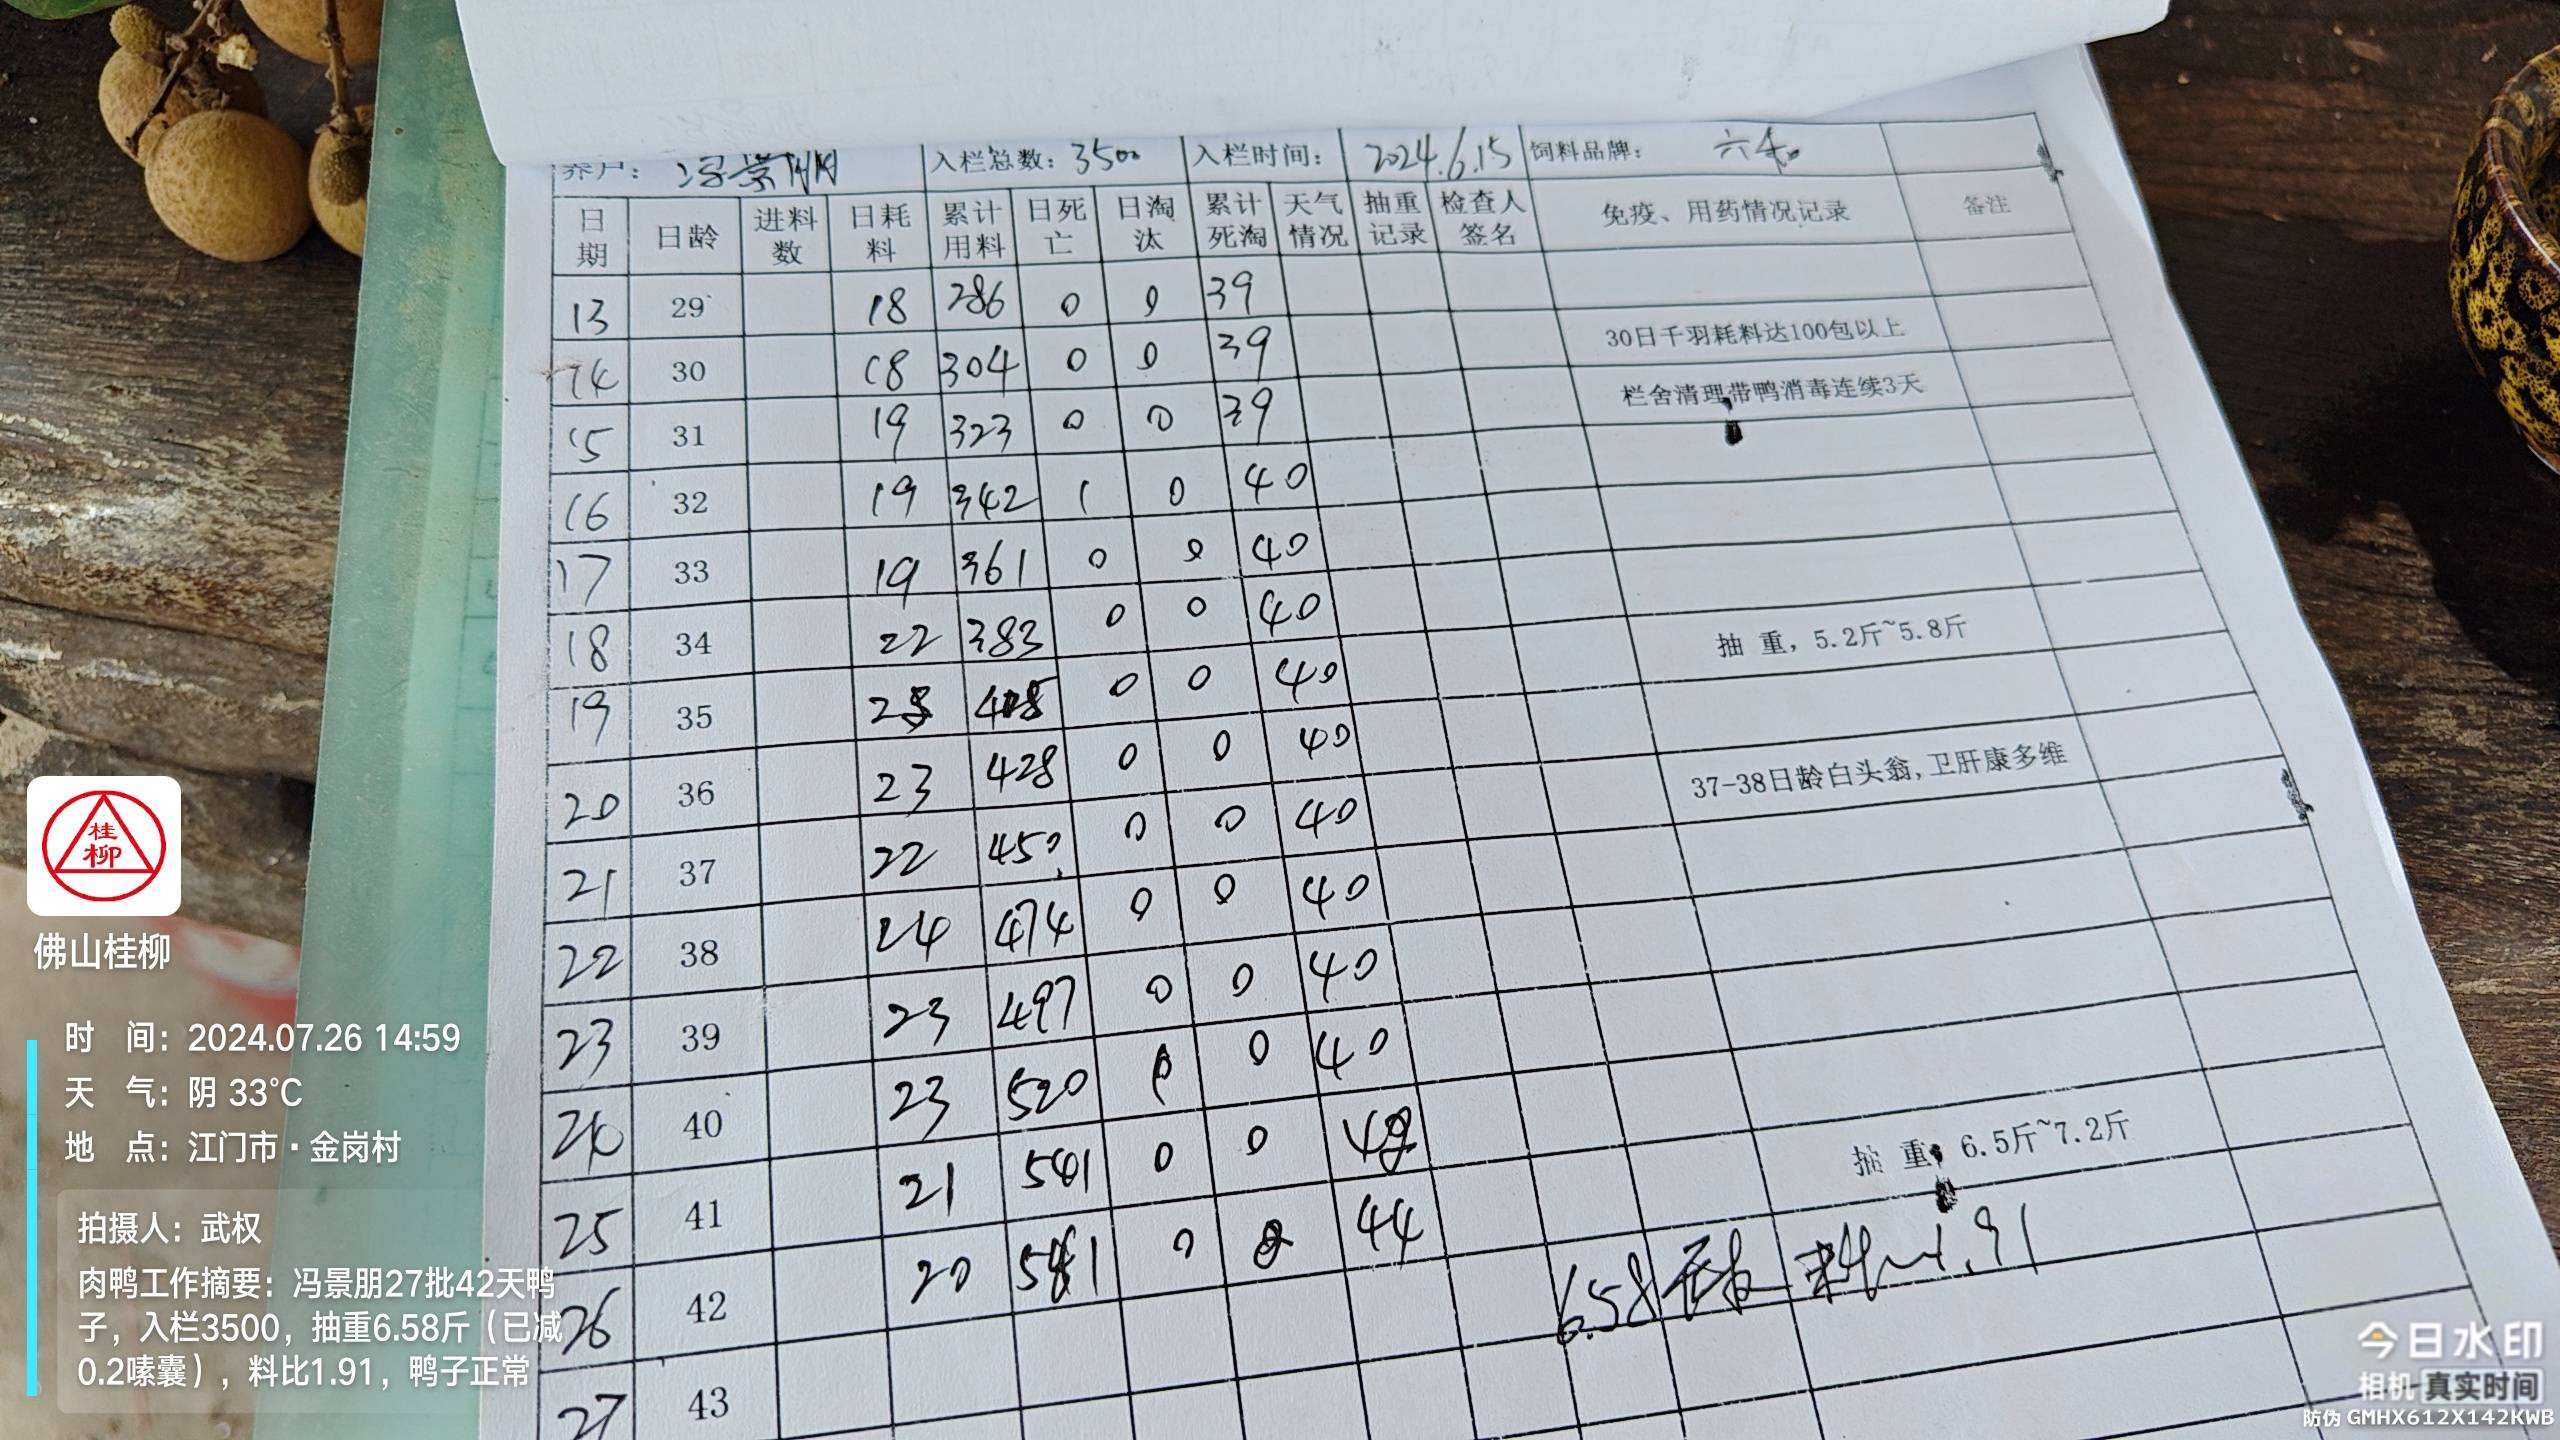 养户： 冯景朋 入栏总数：3500 入栏时间： 2024.6.15 饲料品牌： 六和
日期 日龄 进料数 日耗料 累计用料 日死亡 日淘汰 累计死淘 天气情况 抽重记录 检查人签名 免疫、用药情况记录 备注
13 29 18 286 0 0 39
14 30 18 304 0 0 39 30日千羽耗料达100包以上
15 31 19 323 0 0 39 栏舍清理带鸭消毒连续3天
16 32 19 342 1 0 40
17 33 19 361 0 0 40
18 34 22 383 0 0 40 抽 重，5.2斤~5.8斤
19 35 0 0 40
20 36 23 428 0 0 40 37-38日龄白头翁,卫肝康多维
21 37 22 450 0 0 40
22 38 24 474 0 0 40
23 39 23 497 0 0 40
24 40 23 520 0 40
25 41 21 541 0 0 抽 重，6.5斤~7.2斤
26 42 20 0 44 6.58 料比1.91
27 43
桂柳
佛山桂柳
时 间：2024.07.26 14:59
天 气：阴 33℃
地 点：江门市·金岗村
拍摄人：武权
肉鸭工作摘要：冯景朋27批42天鸭
子，入栏3500，抽重6.58斤（已减
0.2嗉囊），料比1.91，鸭子正常
今日水印
相机 真实时间
防伪 GMHX612X142KWB